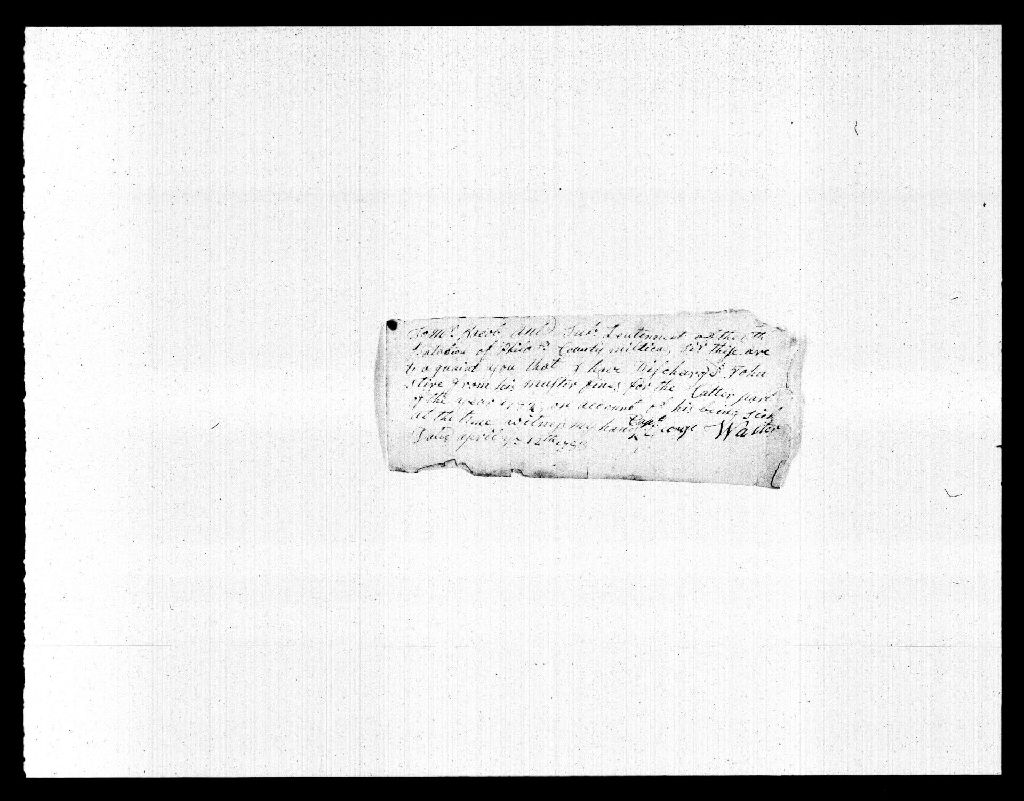 To Mr. Jacob Sub Lieutennent of the th
Batalion of Philad County militia, Sir these are
to aquaint you that I have Dischargd John
Stive from his muster fines for the Latter part
of the year on account of his being Sick
at the time, witness my hand Capt George Waster
Date april ye 12th